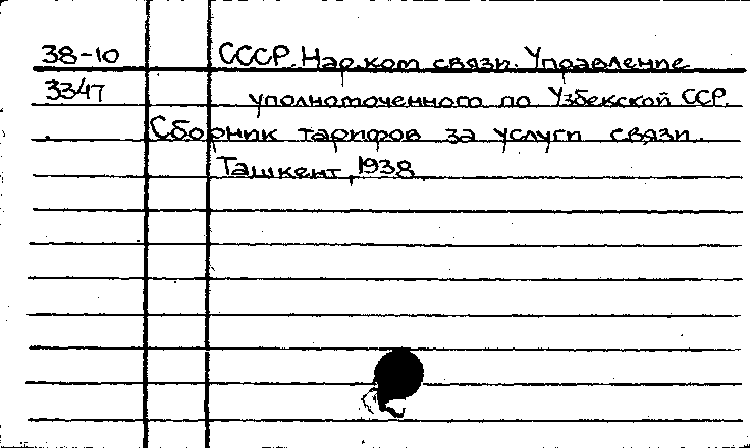 38-10 СССР. Нар.ком связи. Управление
3347 уполномоченного по Узбекской ССР.
Сборник тарифов за услуги связи.
Ташкент, 1938.